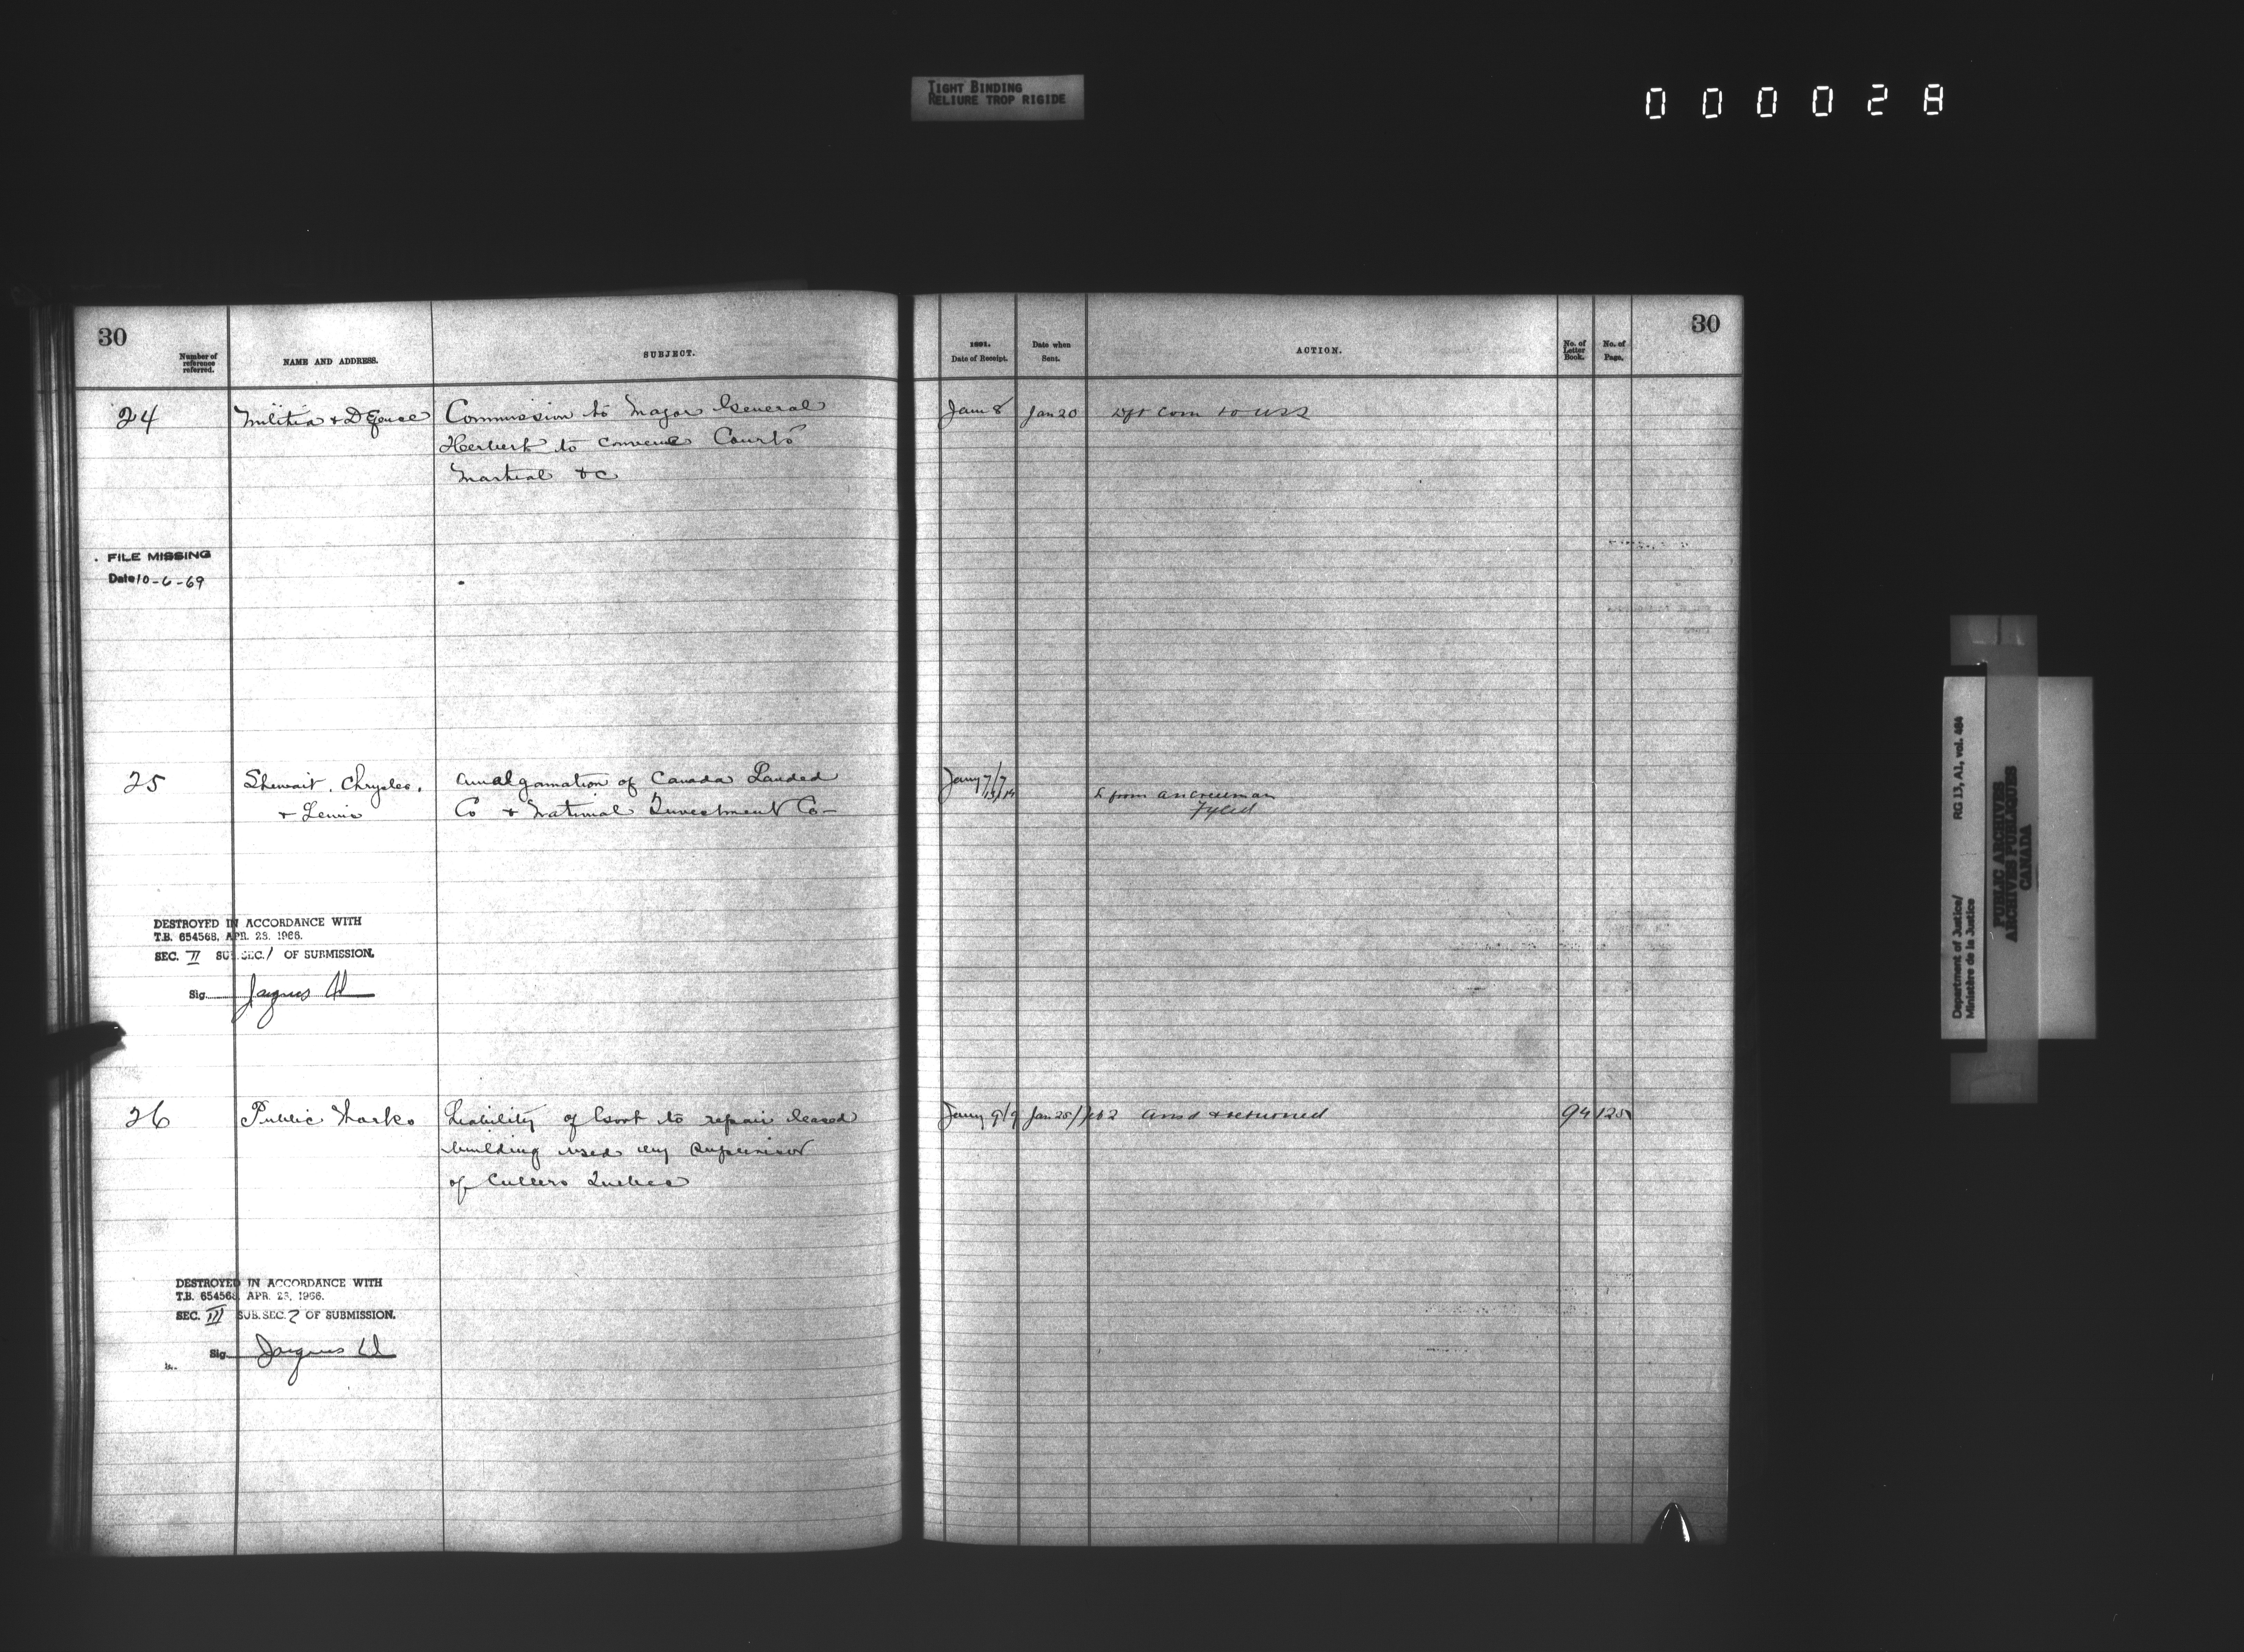 TIGHT BINDING
RELIURE TROP RIGIDE
000028
30
Number of
reference
referred.
NAME AND ADDRESS.
SUBJECT.
24
Militia & Defence
Commission to Major General
Herbert to convene Courts
Martial &c
FILE MISSING
Date 10-6-69
25
Stewart, Chrysler,
& Lewis
Amalgamation of Canada Landed
Co & National Investment Co-
DESTROYED IN ACCORDANCE WITH
T.B. 654568, APR. 23, 1966.
SEC. II SUB.SEC. 1 OF SUBMISSION.
Sig. Jacques
26
Public Works
Liability of Govt to repair leased
building used by Supervisor
of Cullers Quebec
DESTROYED IN ACCORDANCE WITH
T.B. 654568, APR. 23, 1966.
SEC. III SUB.SEC. 2 OF SUBMISSION.
Sig. Jacques
30
1891.
Date of Receipt.
Date when
Sent.
ACTION.
No. of
Letter
Book.
No. of
Page.
Jany 8
Jan 20
Dft Com to USS
Jany 7/7
13/14
L from
Fyled
Jany 9/9
Jan 25/Feb 2
Ansd & returned
94
125
Department of Justice/
Ministère de la Justice
RG 13, A1, vol. 464
PUBLIC ARCHIVES
ARCHIVES PUBLIQUES
CANADA